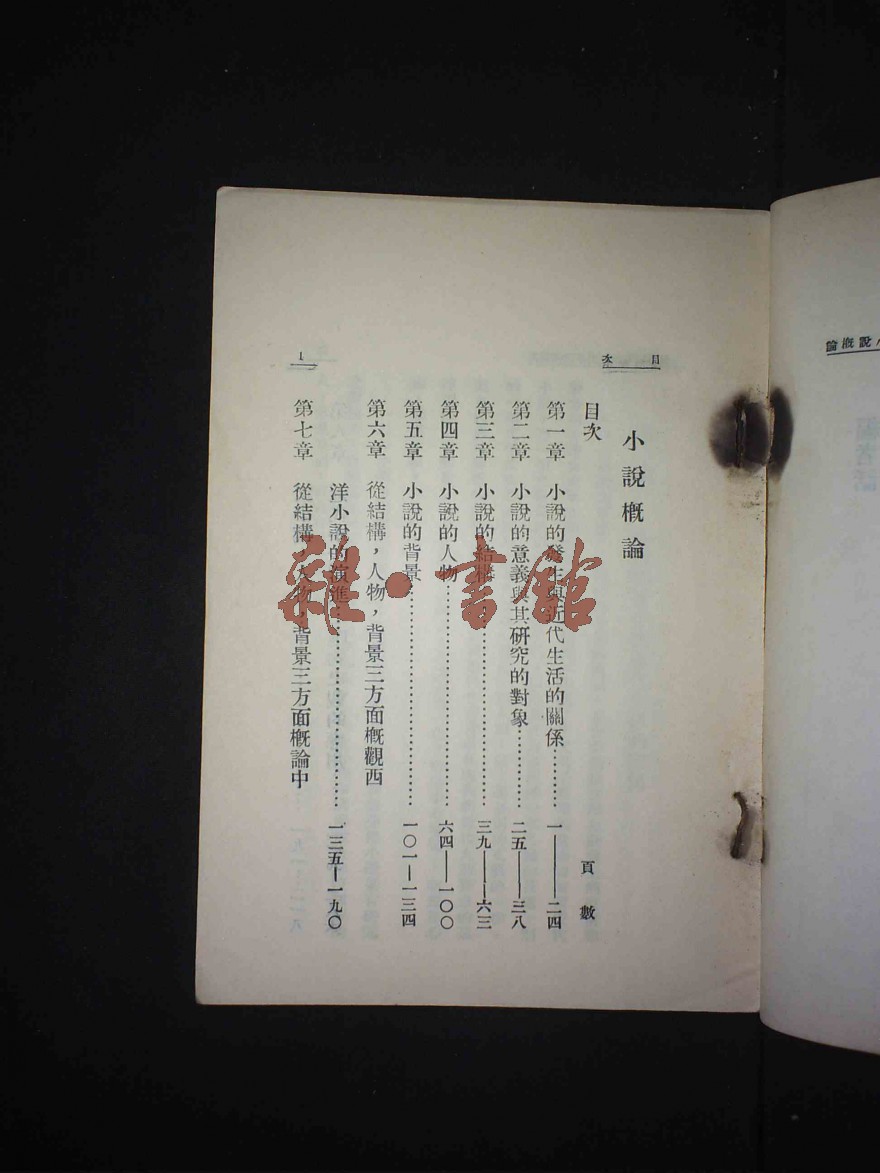 小說概論
目次
目次
頁數
第一章 小說的發生與近代生活的關係………一——二四
第二章 小說的意義與其研究的對象………二五——三八
第三章 小說的結構………三九——六三
第四章 小說的人物………六四——一〇〇
第五章 小說的背景………一〇一—一三四
第六章 從結構，人物，背景三方面概觀西
洋小說的演進………一三五—一九〇
第七章 從結構，人物，背景三方面概論中
1
說概論
雜·書館